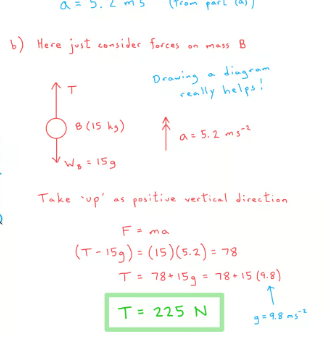 a = 5.2 m s⁻² (from part (a))
b) Here just consider forces on mass B
Drawing a diagram
really helps!
T
B (15 kg)
a = 5.2 ms⁻²
W_B = 15g
Take 'up' as positive vertical direction
F = ma
(T - 15g) = (15)(5.2) = 78
T = 78 + 15g = 78 + 15 (9.8)
T = 225 N
g = 9.8 ms⁻²